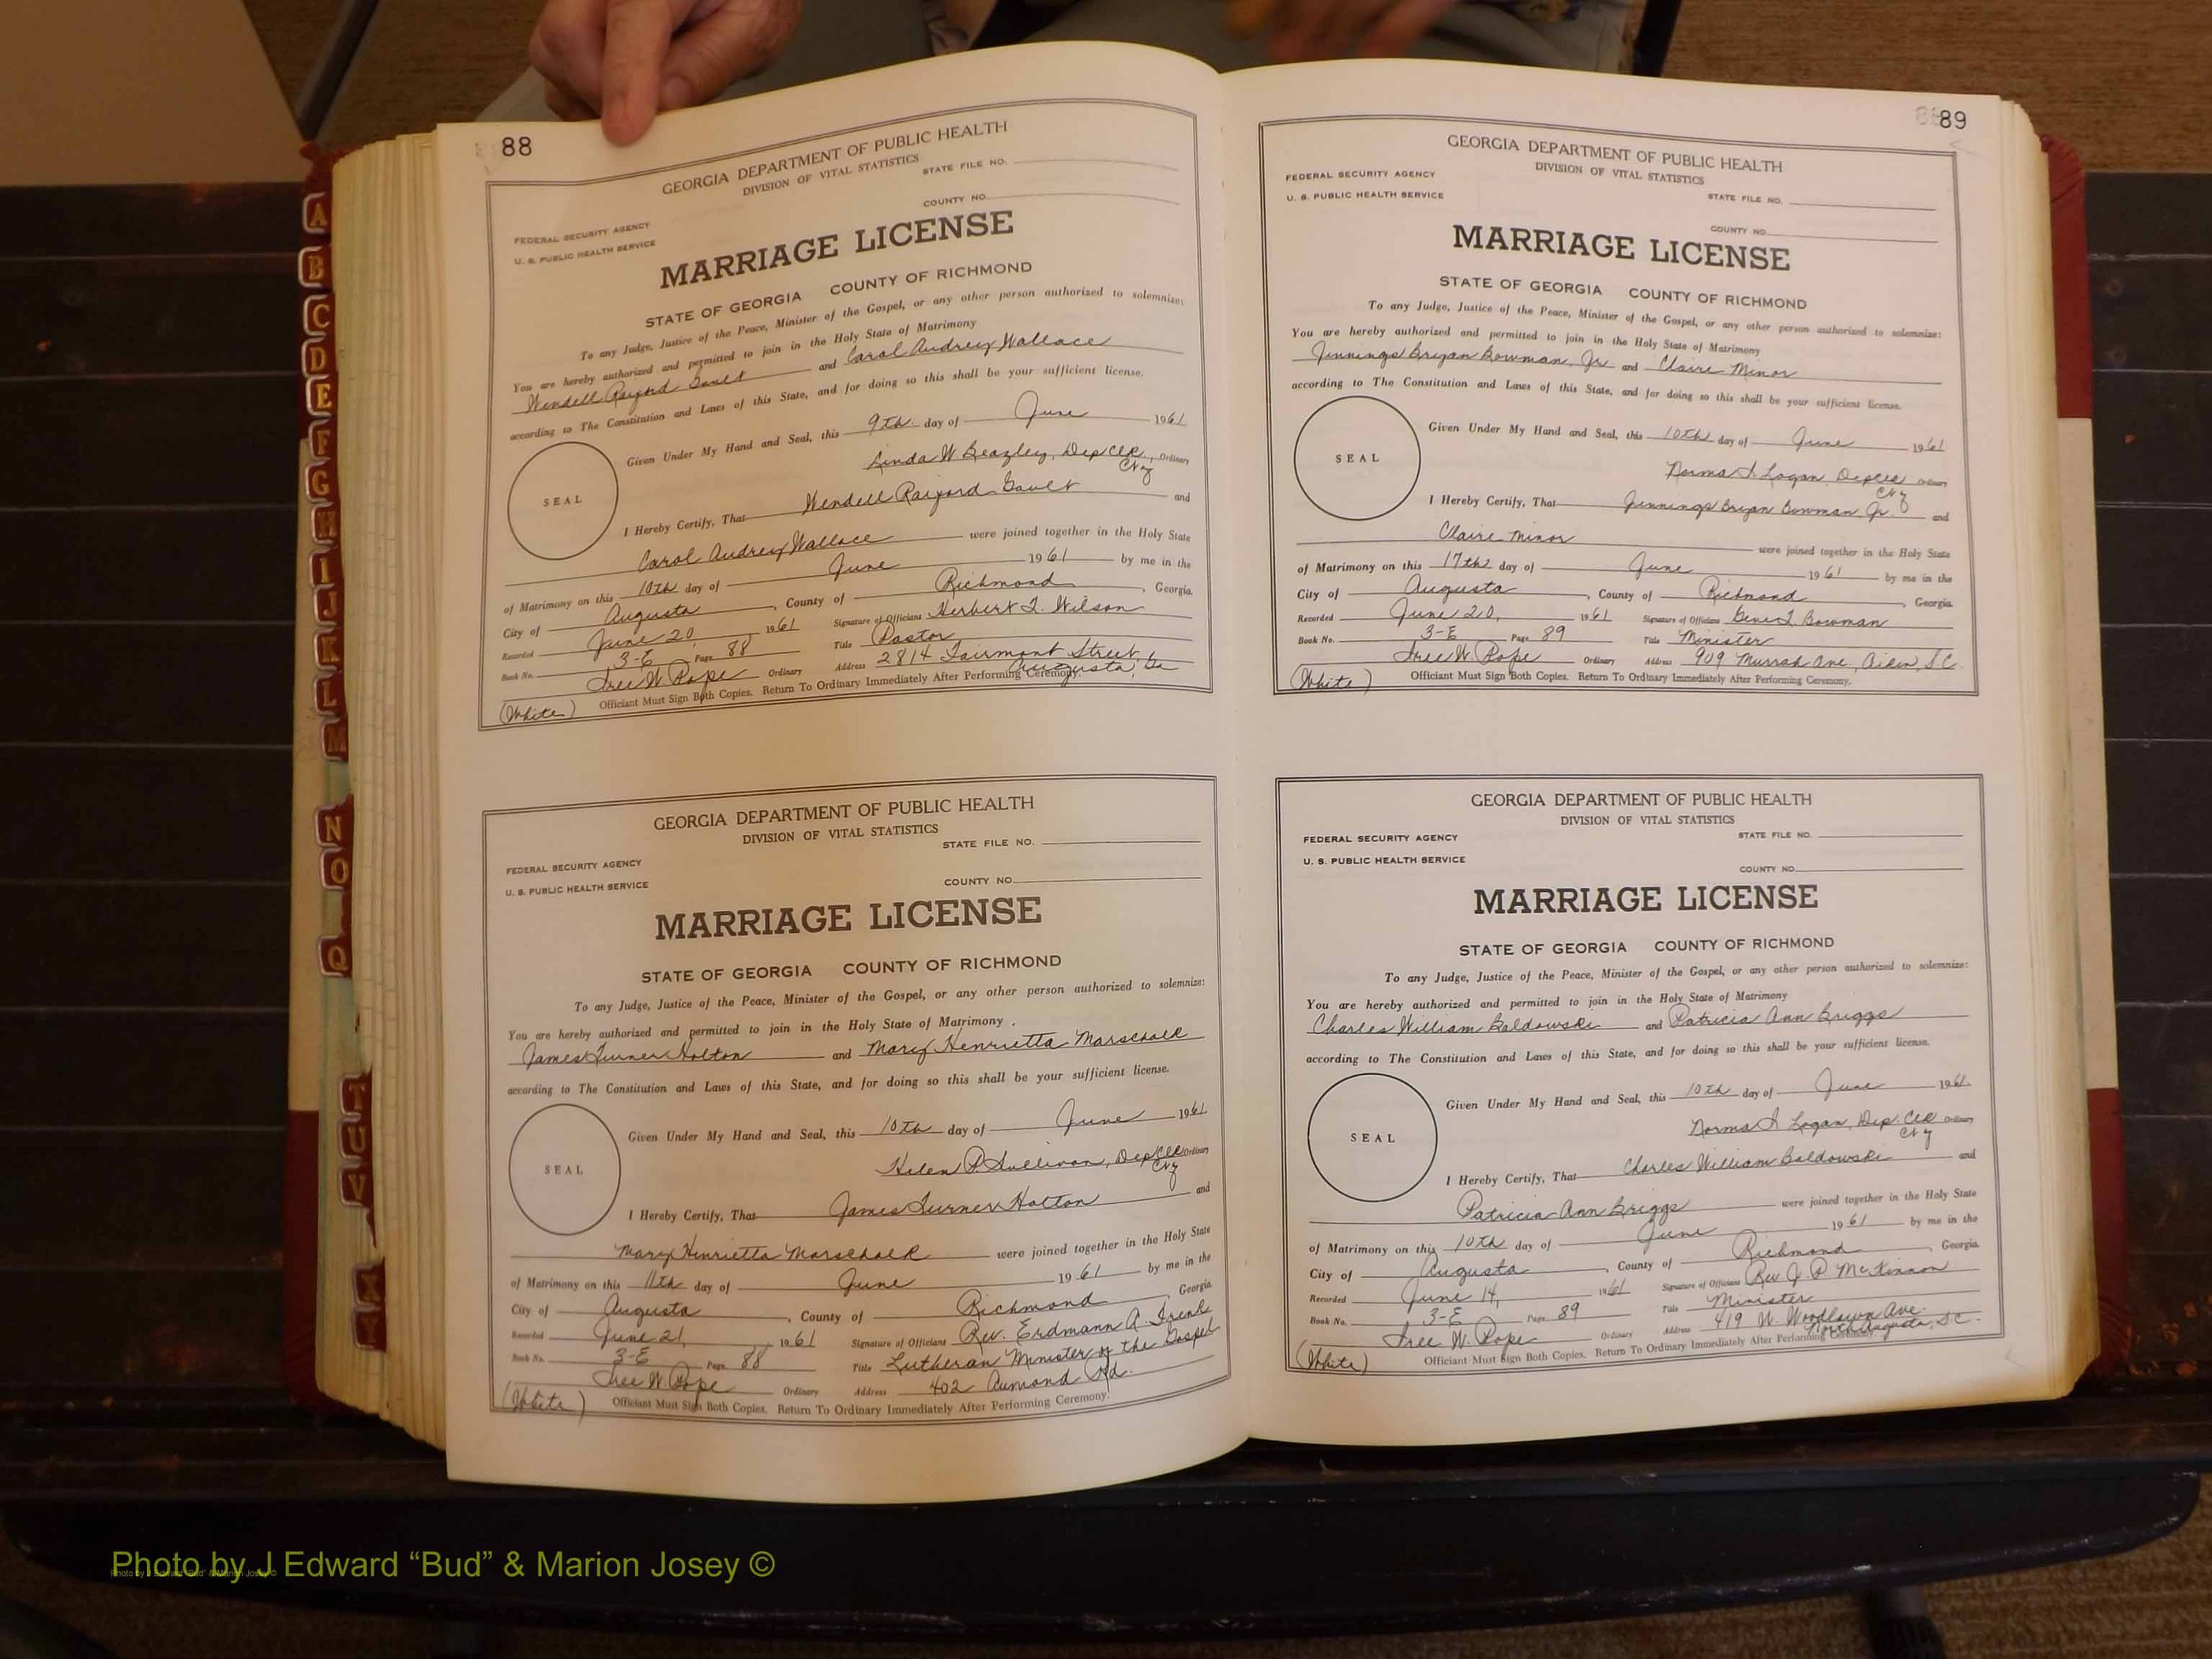 88
GEORGIA DEPARTMENT OF PUBLIC HEALTH
DIVISION OF VITAL STATISTICS
STATE FILE NO.
FEDERAL SECURITY AGENCY
COUNTY NO.
U. S. PUBLIC HEALTH SERVICE
MARRIAGE LICENSE
STATE OF GEORGIA COUNTY OF RICHMOND
To any Judge, Justice of the Peace, Minister of the Gospel, or any other person authorized to solemnize:
You are hereby authorized and permitted to join in the Holy State of Matrimony
Wendell Raiford Gault and Carol Audrey Wallace
according to The Constitution and Laws of this State, and for doing so this shall be your sufficient license.
Given Under My Hand and Seal, this 9th day of June 1961
Linda W Beazley, Dep Clk, Ordinary
SEAL
I Hereby Certify, That Wendell Raiford Gault and
Carol Audrey Wallace were joined together in the Holy State
of Matrimony on this 10th day of June 1961 by me in the
City of Augusta, County of Richmond, Georgia.
Recorded June 20, 1961 Signature of Officiant Herbert L. Wilson
Book No. 3-E Page 88 Title Pastor
W Pope Ordinary Address 2814 Fairmont Street,
Augusta, Ga
(White) Officiant Must Sign Both Copies. Return To Ordinary Immediately After Performing Ceremony.
GEORGIA DEPARTMENT OF PUBLIC HEALTH
DIVISION OF VITAL STATISTICS
STATE FILE NO.
FEDERAL SECURITY AGENCY
U. S. PUBLIC HEALTH SERVICE
COUNTY NO.
MARRIAGE LICENSE
STATE OF GEORGIA COUNTY OF RICHMOND
To any Judge, Justice of the Peace, Minister of the Gospel, or any other person authorized to solemnize:
You are hereby authorized and permitted to join in the Holy State of Matrimony
James Turner Holton and Mary Henrietta Marschalk
according to The Constitution and Laws of this State, and for doing so this shall be your sufficient license.
Given Under My Hand and Seal, this 10th day of June 1961
Helen P. Sullivan, Dep Clk Ordinary
SEAL
I Hereby Certify, That James Turner Holton and
Mary Henrietta Marschalk were joined together in the Holy State
of Matrimony on this 11th day of June 1961 by me in the
City of Augusta, County of Richmond, Georgia.
Recorded June 21, 1961 Signature of Officiant Rev. Erdmann A.
Book No. 3-E Page 88 Title Lutheran Minister of the Gospel
W Pope Ordinary Address 402 Aumond Rd.
(White) Officiant Must Sign Both Copies. Return To Ordinary Immediately After Performing Ceremony.
89
GEORGIA DEPARTMENT OF PUBLIC HEALTH
DIVISION OF VITAL STATISTICS
FEDERAL SECURITY AGENCY
U. S. PUBLIC HEALTH SERVICE
STATE FILE NO.
COUNTY NO.
MARRIAGE LICENSE
STATE OF GEORGIA COUNTY OF RICHMOND
To any Judge, Justice of the Peace, Minister of the Gospel, or any other person authorized to solemnize:
You are hereby authorized and permitted to join in the Holy State of Matrimony
Jennings Bryan Bowman, Jr. and Claire Minor
according to The Constitution and Laws of this State, and for doing so this shall be your sufficient license.
Given Under My Hand and Seal, this 10th day of June 1961
SEAL
Norma I. Logan, Dep Clk Ordinary
I Hereby Certify, That Jennings Bryan Bowman, Jr. and
Claire Minor were joined together in the Holy State
of Matrimony on this 17th day of June 1961 by me in the
City of Augusta, County of Richmond, Georgia.
Recorded June 20, 1961 Signature of Officiant Gene L Bowman
Book No. 3-E Page 89 Title Minister
W. Pope Ordinary Address 909 Murrah Ave, Aiken, S.C.
(White) Officiant Must Sign Both Copies. Return To Ordinary Immediately After Performing Ceremony.
GEORGIA DEPARTMENT OF PUBLIC HEALTH
DIVISION OF VITAL STATISTICS
FEDERAL SECURITY AGENCY
STATE FILE NO.
U. S. PUBLIC HEALTH SERVICE
COUNTY NO.
MARRIAGE LICENSE
STATE OF GEORGIA COUNTY OF RICHMOND
To any Judge, Justice of the Peace, Minister of the Gospel, or any other person authorized to solemnize:
You are hereby authorized and permitted to join in the Holy State of Matrimony
Charles William Baldowski and Patricia Ann Briggs
according to The Constitution and Laws of this State, and for doing so this shall be your sufficient license.
Given Under My Hand and Seal, this 10th day of June 1961.
Norma I Logan, Dep. Clk Ordinary
SEAL
I Hereby Certify, That Charles William Baldowski and
Patricia Ann Briggs were joined together in the Holy State
of Matrimony on this 10th day of June 1961 by me in the
City of Augusta, County of Richmond, Georgia.
Recorded June 14, 1961 Signature of Officiant Rev J. P McKinnon
Book No. 3-E Page 89 Title Minister
W. Pope Ordinary Address 419 W. Woodlawn Ave.
North Augusta, S.C.
(White) Officiant Must Sign Both Copies. Return To Ordinary Immediately After Performing Ceremony.
A
B
C
D
E
F
G
H
I
J
K
L
M
N
O
Q
T
U
V
X
Y
Photo by J Edward “Bud” & Marion Josey ©
Photo by J Edward “Bud” & Marion Josey ©